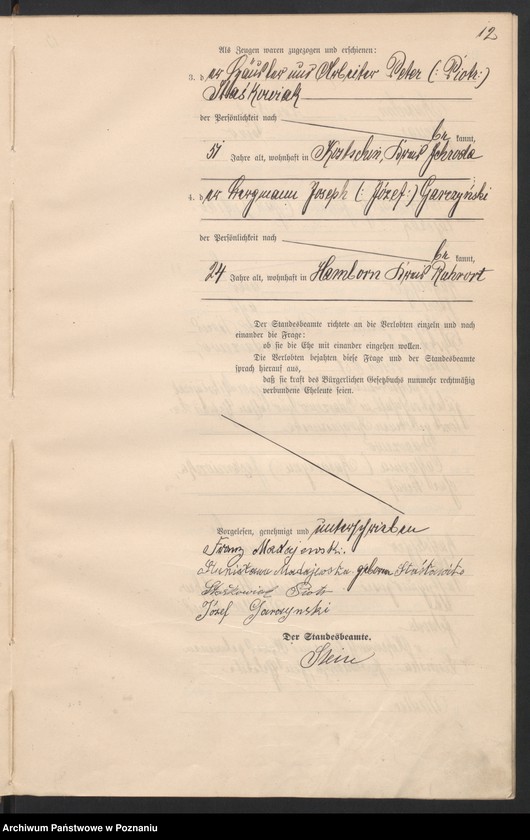 12
Als Zeugen waren zugezogen und erschienen:
3. der Häusler und Arbeiter Peter (: Piotr :)
Staśkowiak
der Persönlichkeit nach
be kannt,
51 Jahre alt, wohnhaft in Kostschin, Kreis Schroda
;
4. der Bergmann Joseph (: Józef :) Garczyński
der Persönlichkeit nach
be kannt,
24 Jahre alt, wohnhaft in Hamborn Kreis Ruhrort
.
Der Standesbeamte richtete an die Verlobten einzeln und nach
einander die Frage:
ob sie die Ehe mit einander eingehen wollen.
Die Verlobten bejahten diese Frage und der Standesbeamte
sprach hierauf aus,
daß sie kraft des Bürgerlichen Gesetzbuchs nunmehr rechtmäßig
verbundene Eheleute seien.
Vorgelesen, genehmigt und unterschrieben
Franz Madajewski.
Madajewska geborne
Piotr
Józef Garczynski
Der Standesbeamte.
Stein
Archiwum Państwowe w Poznaniu